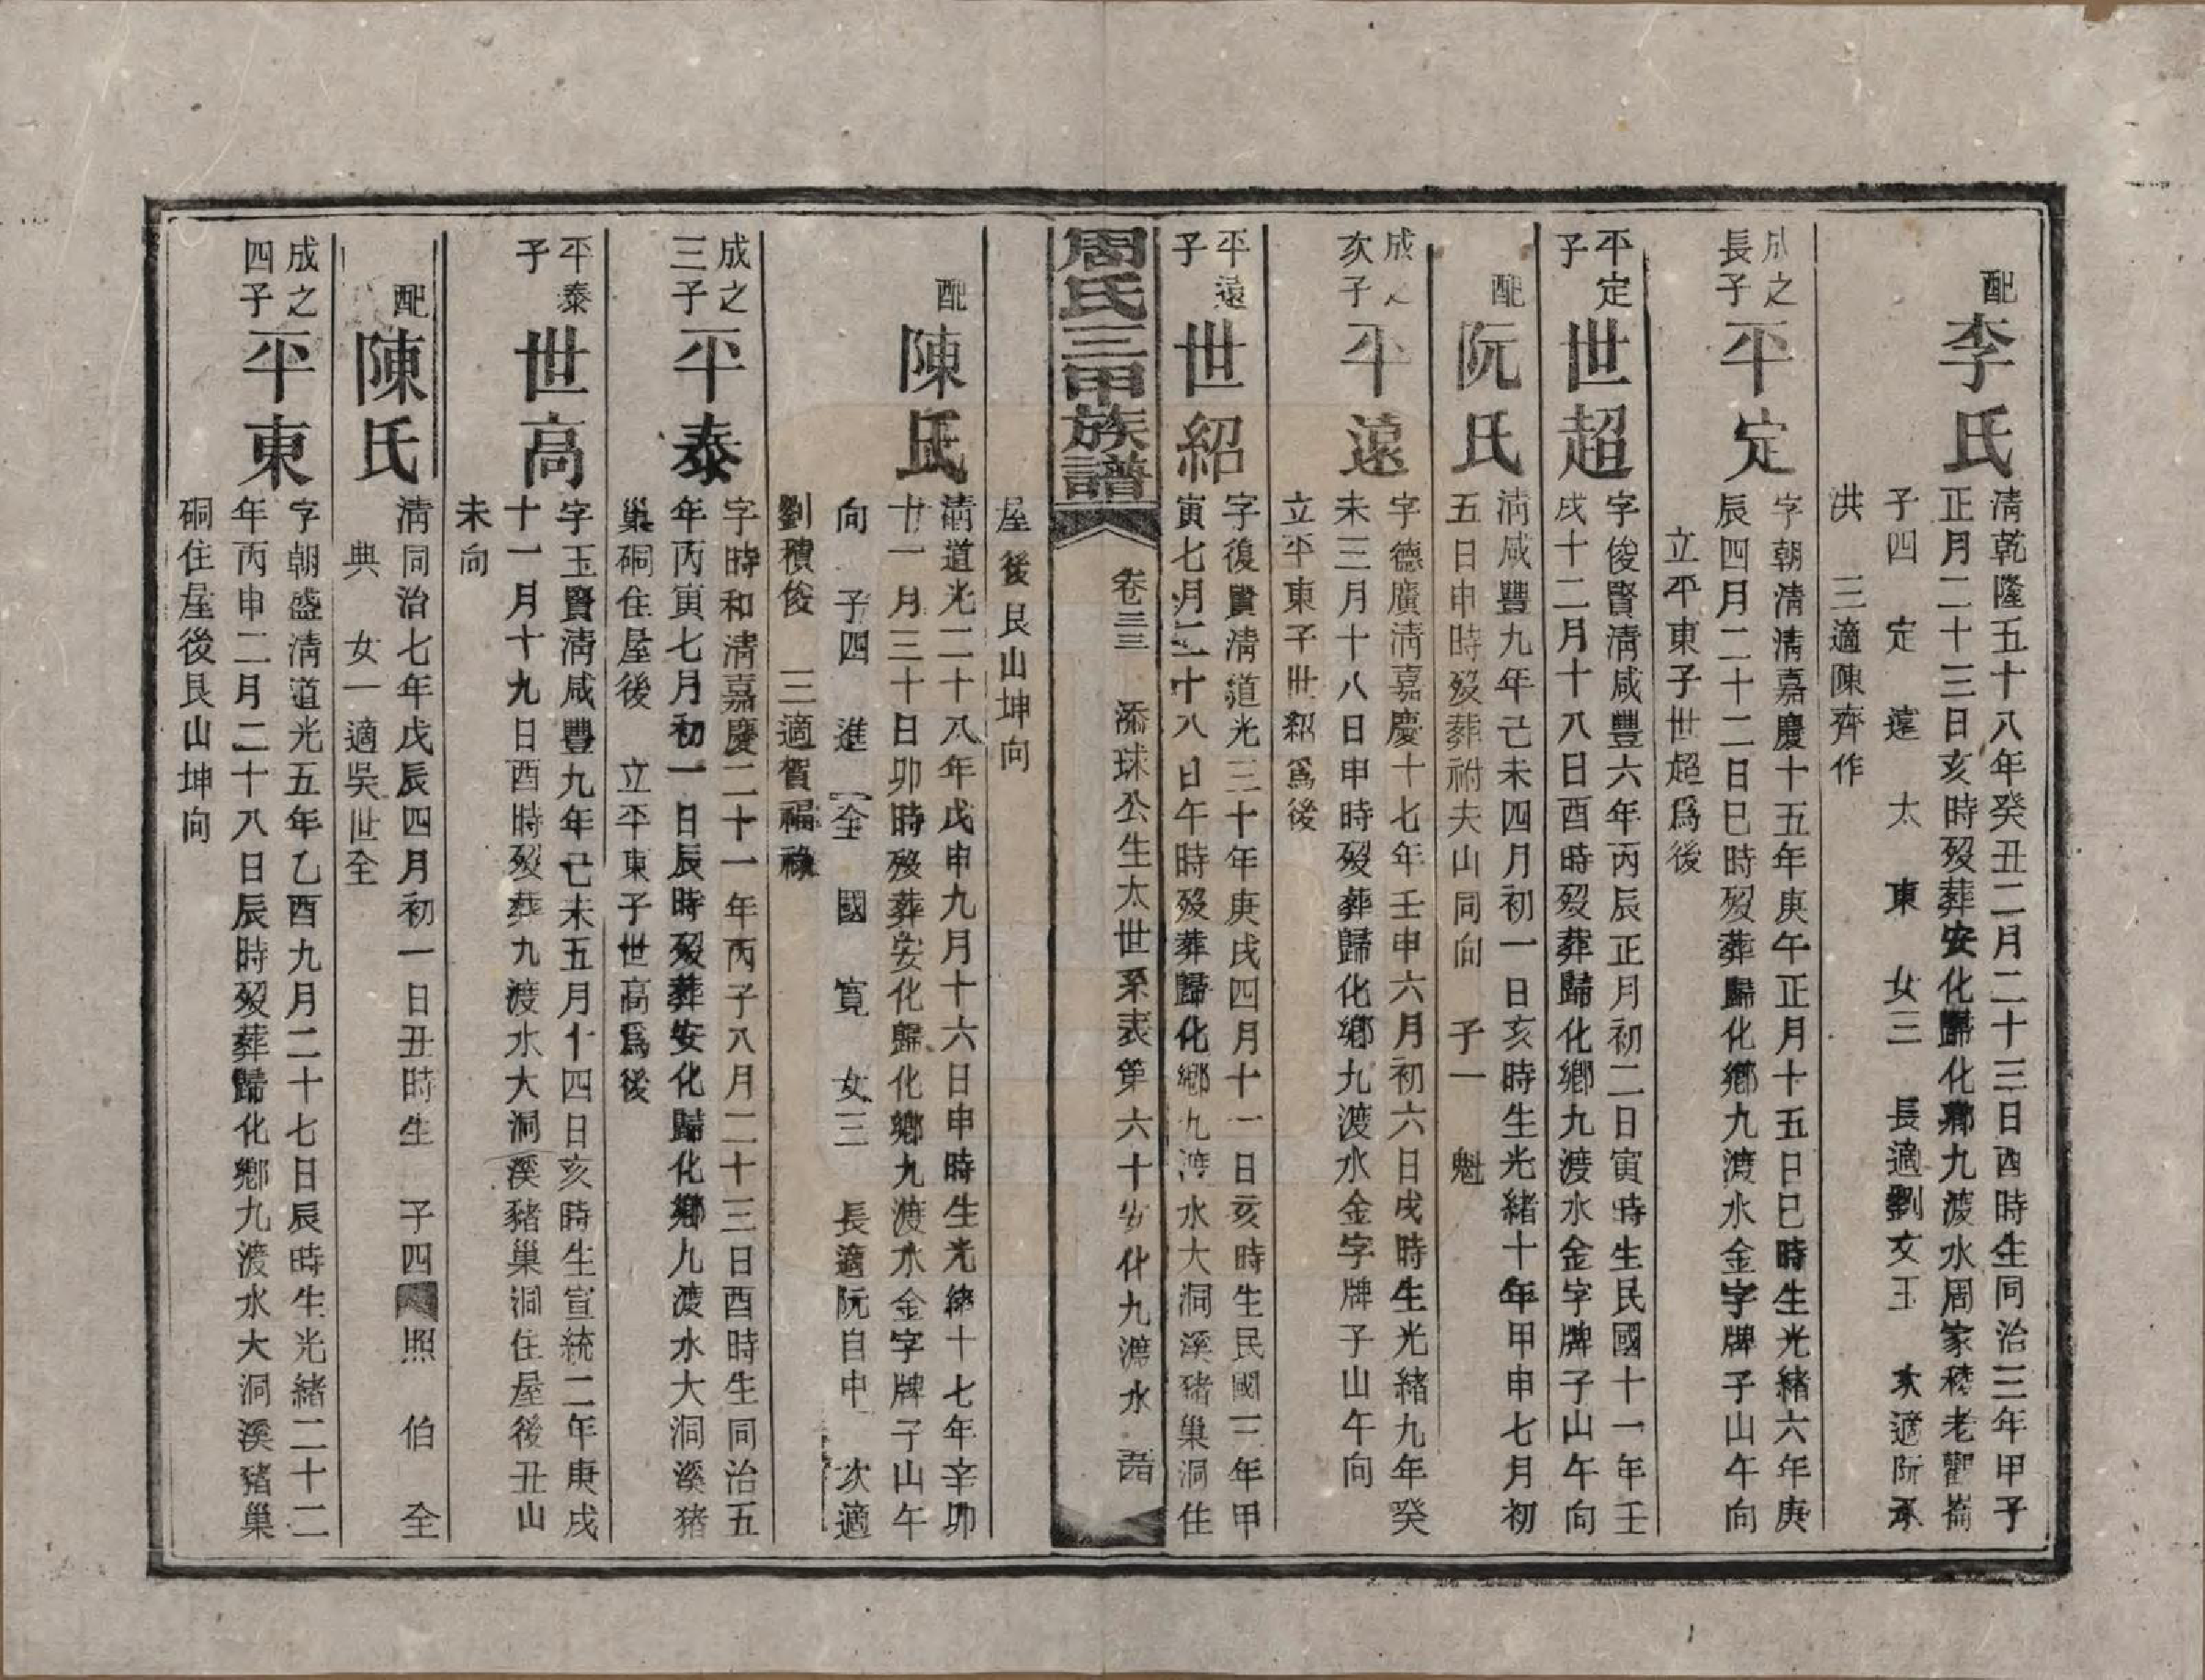 配
李氏
清乾隆五十八年癸丑二月二十三日酉時生同治三年甲子
正月二十三日亥時歿葬安化歸化鄉九渡水周家嵊老鸛崙
子四 定 遠 太 東 女三 長適劉文玉 次適阮承
洪 三適陳齊作
成之
長子
平定
字朝清清嘉慶十五年庚午正月十五日巳時生光緒六年庚
辰四月二十二日巳時歿葬歸化鄉九渡水金字牌子山午向
立平東子世超爲後
平定
子
世超
字俊賢清咸豐六年丙辰正月初二日寅時生民國十一年壬
戌十二月十八日酉時歿葬歸化鄉九渡水金字牌子山午向
配
阮氏
清咸豐九年己未四月初一日亥時生光緒十年甲申七月初
五日申時歿葬祔夫山同向 子一 魁
成之
次子
平遠
字德廣清嘉慶十七年壬申六月初六日戌時生光緒九年癸
未三月十八日申時歿葬歸化鄉九渡水金字牌子山午向
立平東子世紹爲後
平遠
子
世紹
字復賢清道光三十年庚戌四月十一日亥時生民國三年甲
寅七月二十八日午時歿葬歸化鄉九渡水大洞溪猪巢洞住
周氏三甲族譜
卷三三 添球公生太世系表第六十 安化九渡水
屋後艮山坤向
配
陳氏
清道光二十八年戊申九月十六日申時生光緒十七年辛卯
廿一月三十日卯時歿葬安化歸化鄉九渡水金字牌子山午
向 子四 進 全 國 寬 女三 長適阮自中 次適
劉積俊 三適賀福祿
成之
三子
平泰
字時和清嘉慶二十一年丙子八月二十三日酉時生同治五
年丙寅七月初一日辰時歿葬安化歸化鄉九渡水大洞溪猪
巢硐住屋後 立平東子世高爲後
平泰
子
世高
字玉賢清咸豐九年己未五月十四日亥時生宣統二年庚戌
十一月十九日酉時歿葬九渡水大洞溪豬巢洞住屋後丑山
未向
配
陳氏
清同治七年戊辰四月初一日丑時生 子四 照 伯 全
典 女一適吳世全
成之
四子
平東
字朝盛清道光五年乙酉九月二十七日辰時生光緒二十二
年丙申二月二十八日辰時歿葬歸化鄉九渡水大洞溪豬巢
硐住屋後艮山坤向